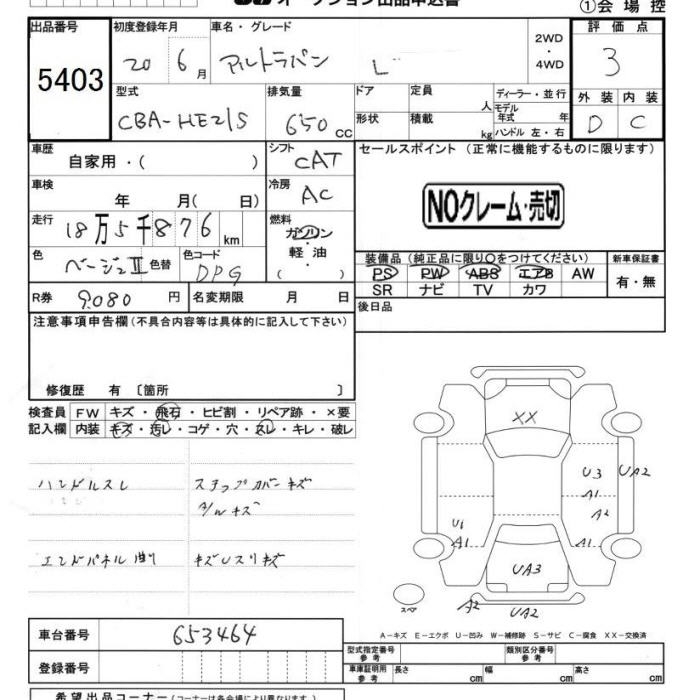 オークション出品申込書
①会場控
出品番号 初度登録年月 車名・グレード 評価点
5403 20 6月 アルトラパン L 2WD ・ 4WD 3
型式 排気量 ドア 定員 人 ディーラー・並行 外装 内装
CBA-HE21S 650cc 形状 積載 kg モデル年式 年 ハンドル 左・右 D C
車歴 自家用・( ) シフト CAT セールスポイント(正常に機能するものに限ります)
車検 年 月( 日) 冷房 AC
NOクレーム・売切
走行 18万5千876km 燃料 ガソリン・軽油( )
色 ベージュII 色替 色コード DPG
装備品(純正品に限り○をつけてください) 新車保証書
PS PW ABS エアB AW 有・無
SR ナビ TV カワ
R券 9,080円 名変期限 月 日 後日品
注意事項申告欄(不具合内容等は具体的に記入して下さい)
修復歴 有 〔箇所 〕
検査員 FW キズ・飛石・ヒビ割・リペア跡・×要
記入欄 内装 キズ・汚レ・コゲ・穴・スレ・キレ・破レ
ハンドルスレ ステップカバーキズ
エンドパネル キズUスリキズ
XX
U3 UA2
A1
A2
U1
A1 A1
UA3
スペア A2 UA2
A-キズ E-エクボ U-凹み W-補修跡 S-サビ C-腐食 XX-交換済
車台番号 653464
登録番号
型式指定番号 参考 類別区分番号 参考
車庫証明用 参考 長さ cm 幅 cm 高さ cm
希望出品コーナー(コーナーは各会場により異なります)